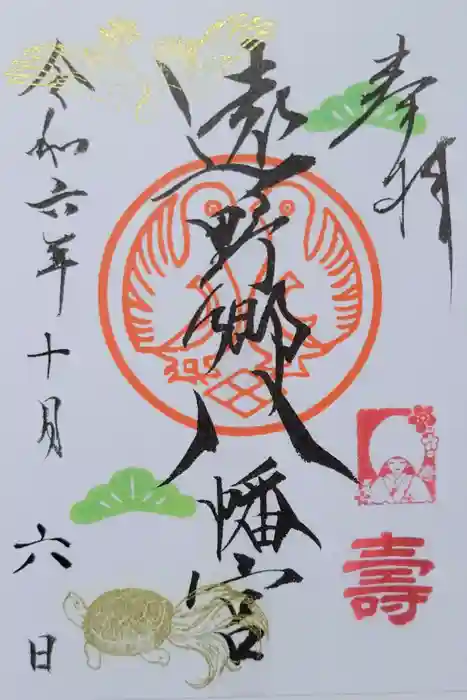 奉拝
壽
遠野郷八幡宮
令和六年十月六日